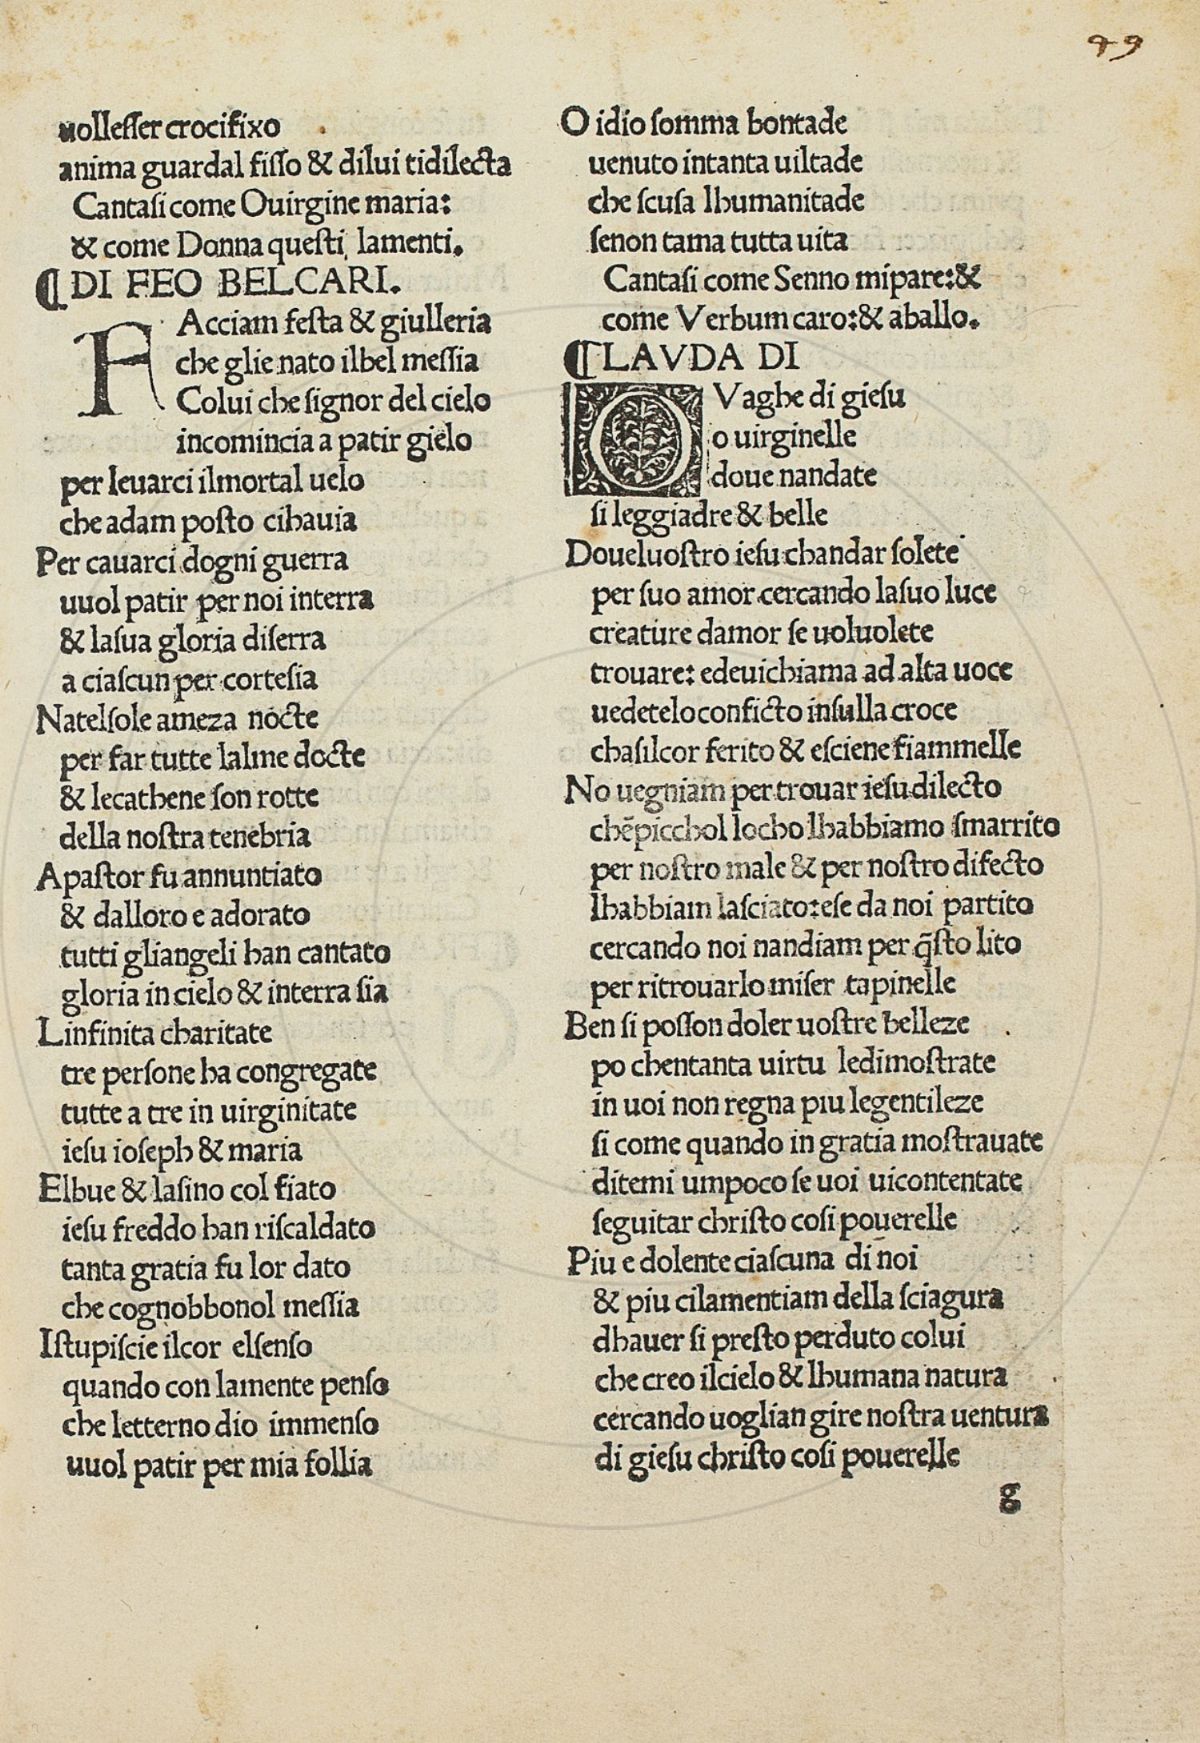 49
uolleſſer crocifixo
anima guardal fiſſo & dilui tidilecta
Cantaſi come Ouirgine maria:
& come Donna queſti lamenti.
¶DI FEO BELCARI.
FAcciam feſta & giulleria
che glie nato ilbel meſſia
Colui che ſignor del cielo
incomincia a patir gielo
per leuarci ilmortal uelo
che adam poſto cihauia
Per cauarci dogni guerra
uuol patir per noi interra
& laſua gloria diſerra
a ciaſcun per corteſia
Natelſole ameza nocte
per far tutte lalme docte
& lecathene ſon rotte
della noſtra tenebria
Apaſtor fu annuntiato
& dalloro e adorato
tutti gliangeli han cantato
gloria in cielo & interra ſia
Linfinita charitate
tre perſone ha congregate
tutte a tre in uirginitate
ieſu ioſeph & maria
Elbue & laſino col fiato
ieſu freddo han riſcaldato
tanta gratia fu lor dato
che cognobbonol meſſia
Iſtupiſcie ilcor elſenſo
quando con lamente penſo
che letterno dio immenſo
uuol patir per mia follia
O idio ſomma bontade
uenuto intanta uiltade
che ſcuſa lhumanitade
ſenon tama tutta uita
Cantaſi come Senno mipare:&
come Verbum caro:& aballo.
¶LAVDA DI
O Vaghe di gieſu
o uirginelle
doue nandate
ſi leggiadre & belle
Doueluoſtro ieſu chandar ſolete
per ſuo amor cercando laſuo luce
creature damor ſe uoluolete
trouare: edeuichiama ad alta uoce
uedetelo conficto inſulla croce
chaſilcor ferito & eſciene fiammelle
No uegniam per trouar ieſu dilecto
chēpicchol locho lhabbiamo ſmarrito
per noſtro male & per noſtro difecto
lhabbiam laſciato:eſe da noi partito
cercando noi nandiam per q̄ſto lito
per ritrouarlo miſer tapinelle
Ben ſi poſſon doler uoſtre belleze
po chentanta uirtu ledimoſtrate
in uoi non regna piu legentileze
ſi come quando in gratia moſtrauate
ditemi umpoco ſe uoi uicontentate
ſeguitar chriſto coſi pouerelle
Piu e dolente ciaſcuna di noi
& piu cilamentiam della ſciagura
dhauer ſi preſto perduto colui
che creo ilcielo & lhumana natura
cercando uoglian gire noſtra uentura
di gieſu chriſto coſi pouerelle
g